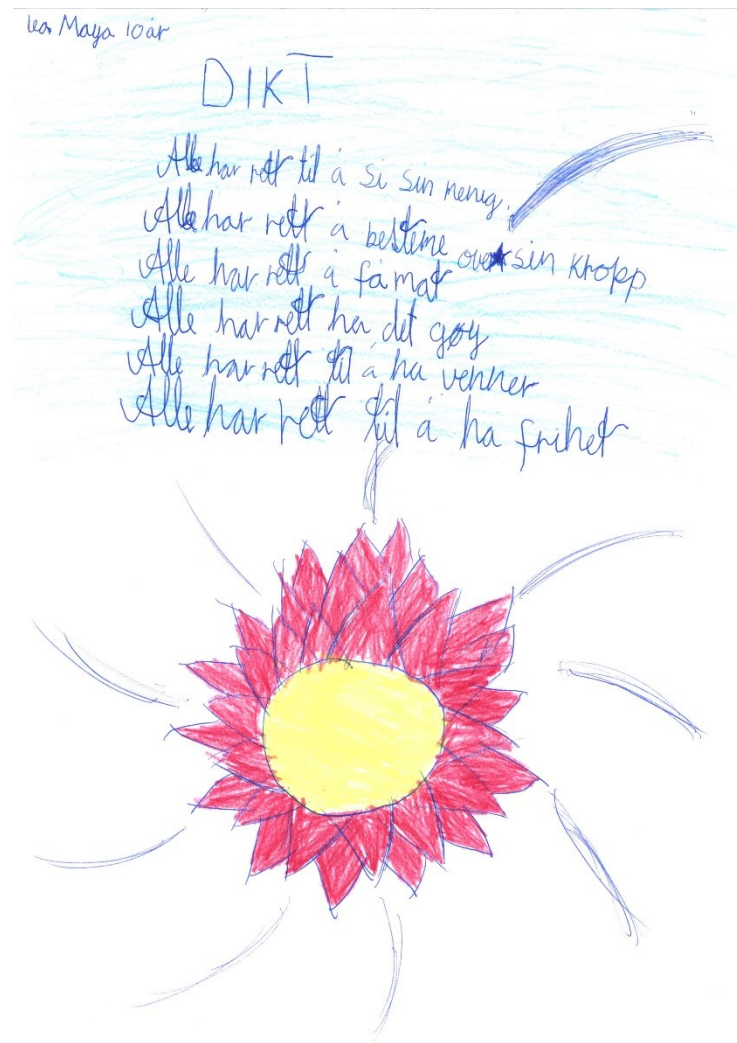 lea Maya 10 år
DIKT
Alle har rett til å si sin menig.
Alle har rett å besteme over sin kropp
Alle har rett å få mat
Alle har rett ha det gøy
Alle har rett til å ha venner
Alle har rett til å ha frihet